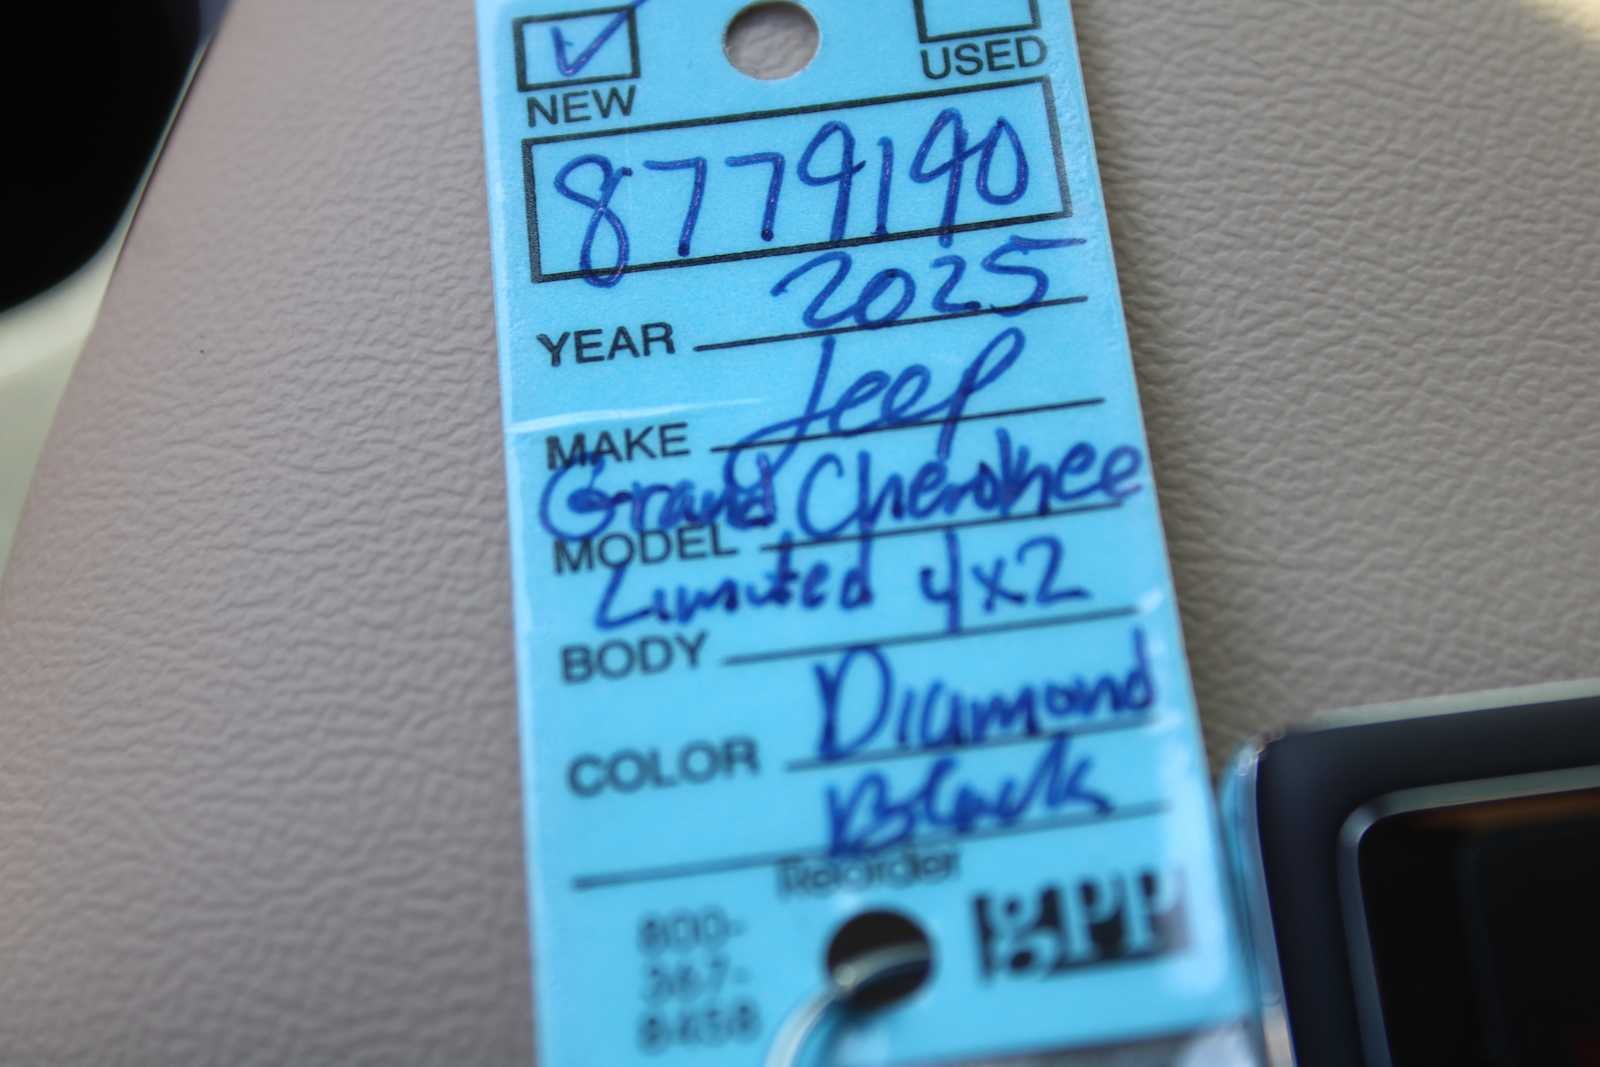 NEW USED
8779190
YEAR 2025
MAKE Jeep
Grand Cherokee
MODEL
Limited 4x2
BODY
Diamond
COLOR
Black
Reorder
800-
367-
8458
gpp